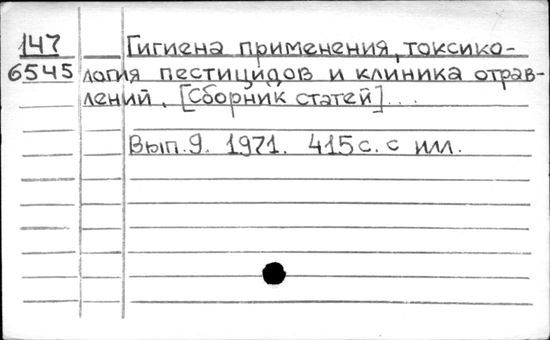 147
6545
Гигиена применения, токсико-
логия пестицидов и клиника отрав-
лений. [Сборник статей]...
Вып. 9. 1971. 415 с. с илл.